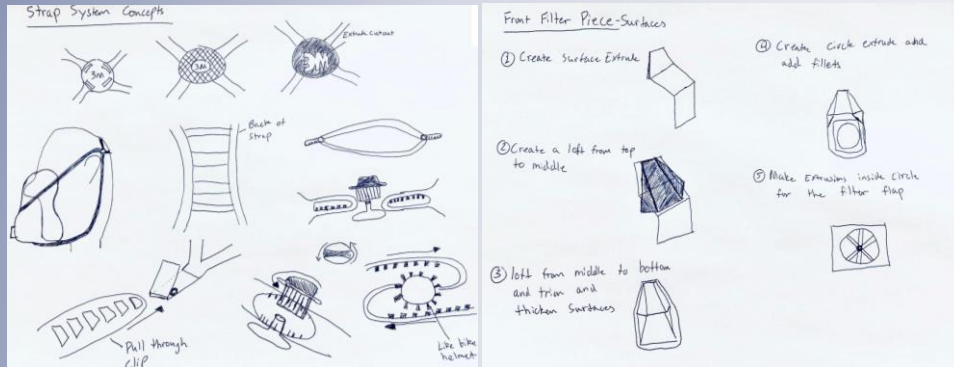 Strap System Concepts
3M
3M
3M
Extrude Cutout
Back of
strap
Pull through
clip
Like bike
helmet
Front Filter Piece-Surfaces
① Create Surface Extrude
② Create a loft from top
to middle
③ loft from middle to bottom
and trim and
thicken Surfaces
④ Create circle extrude and
add fillets
⑤ Make Extrusions inside circle
for the filter flap